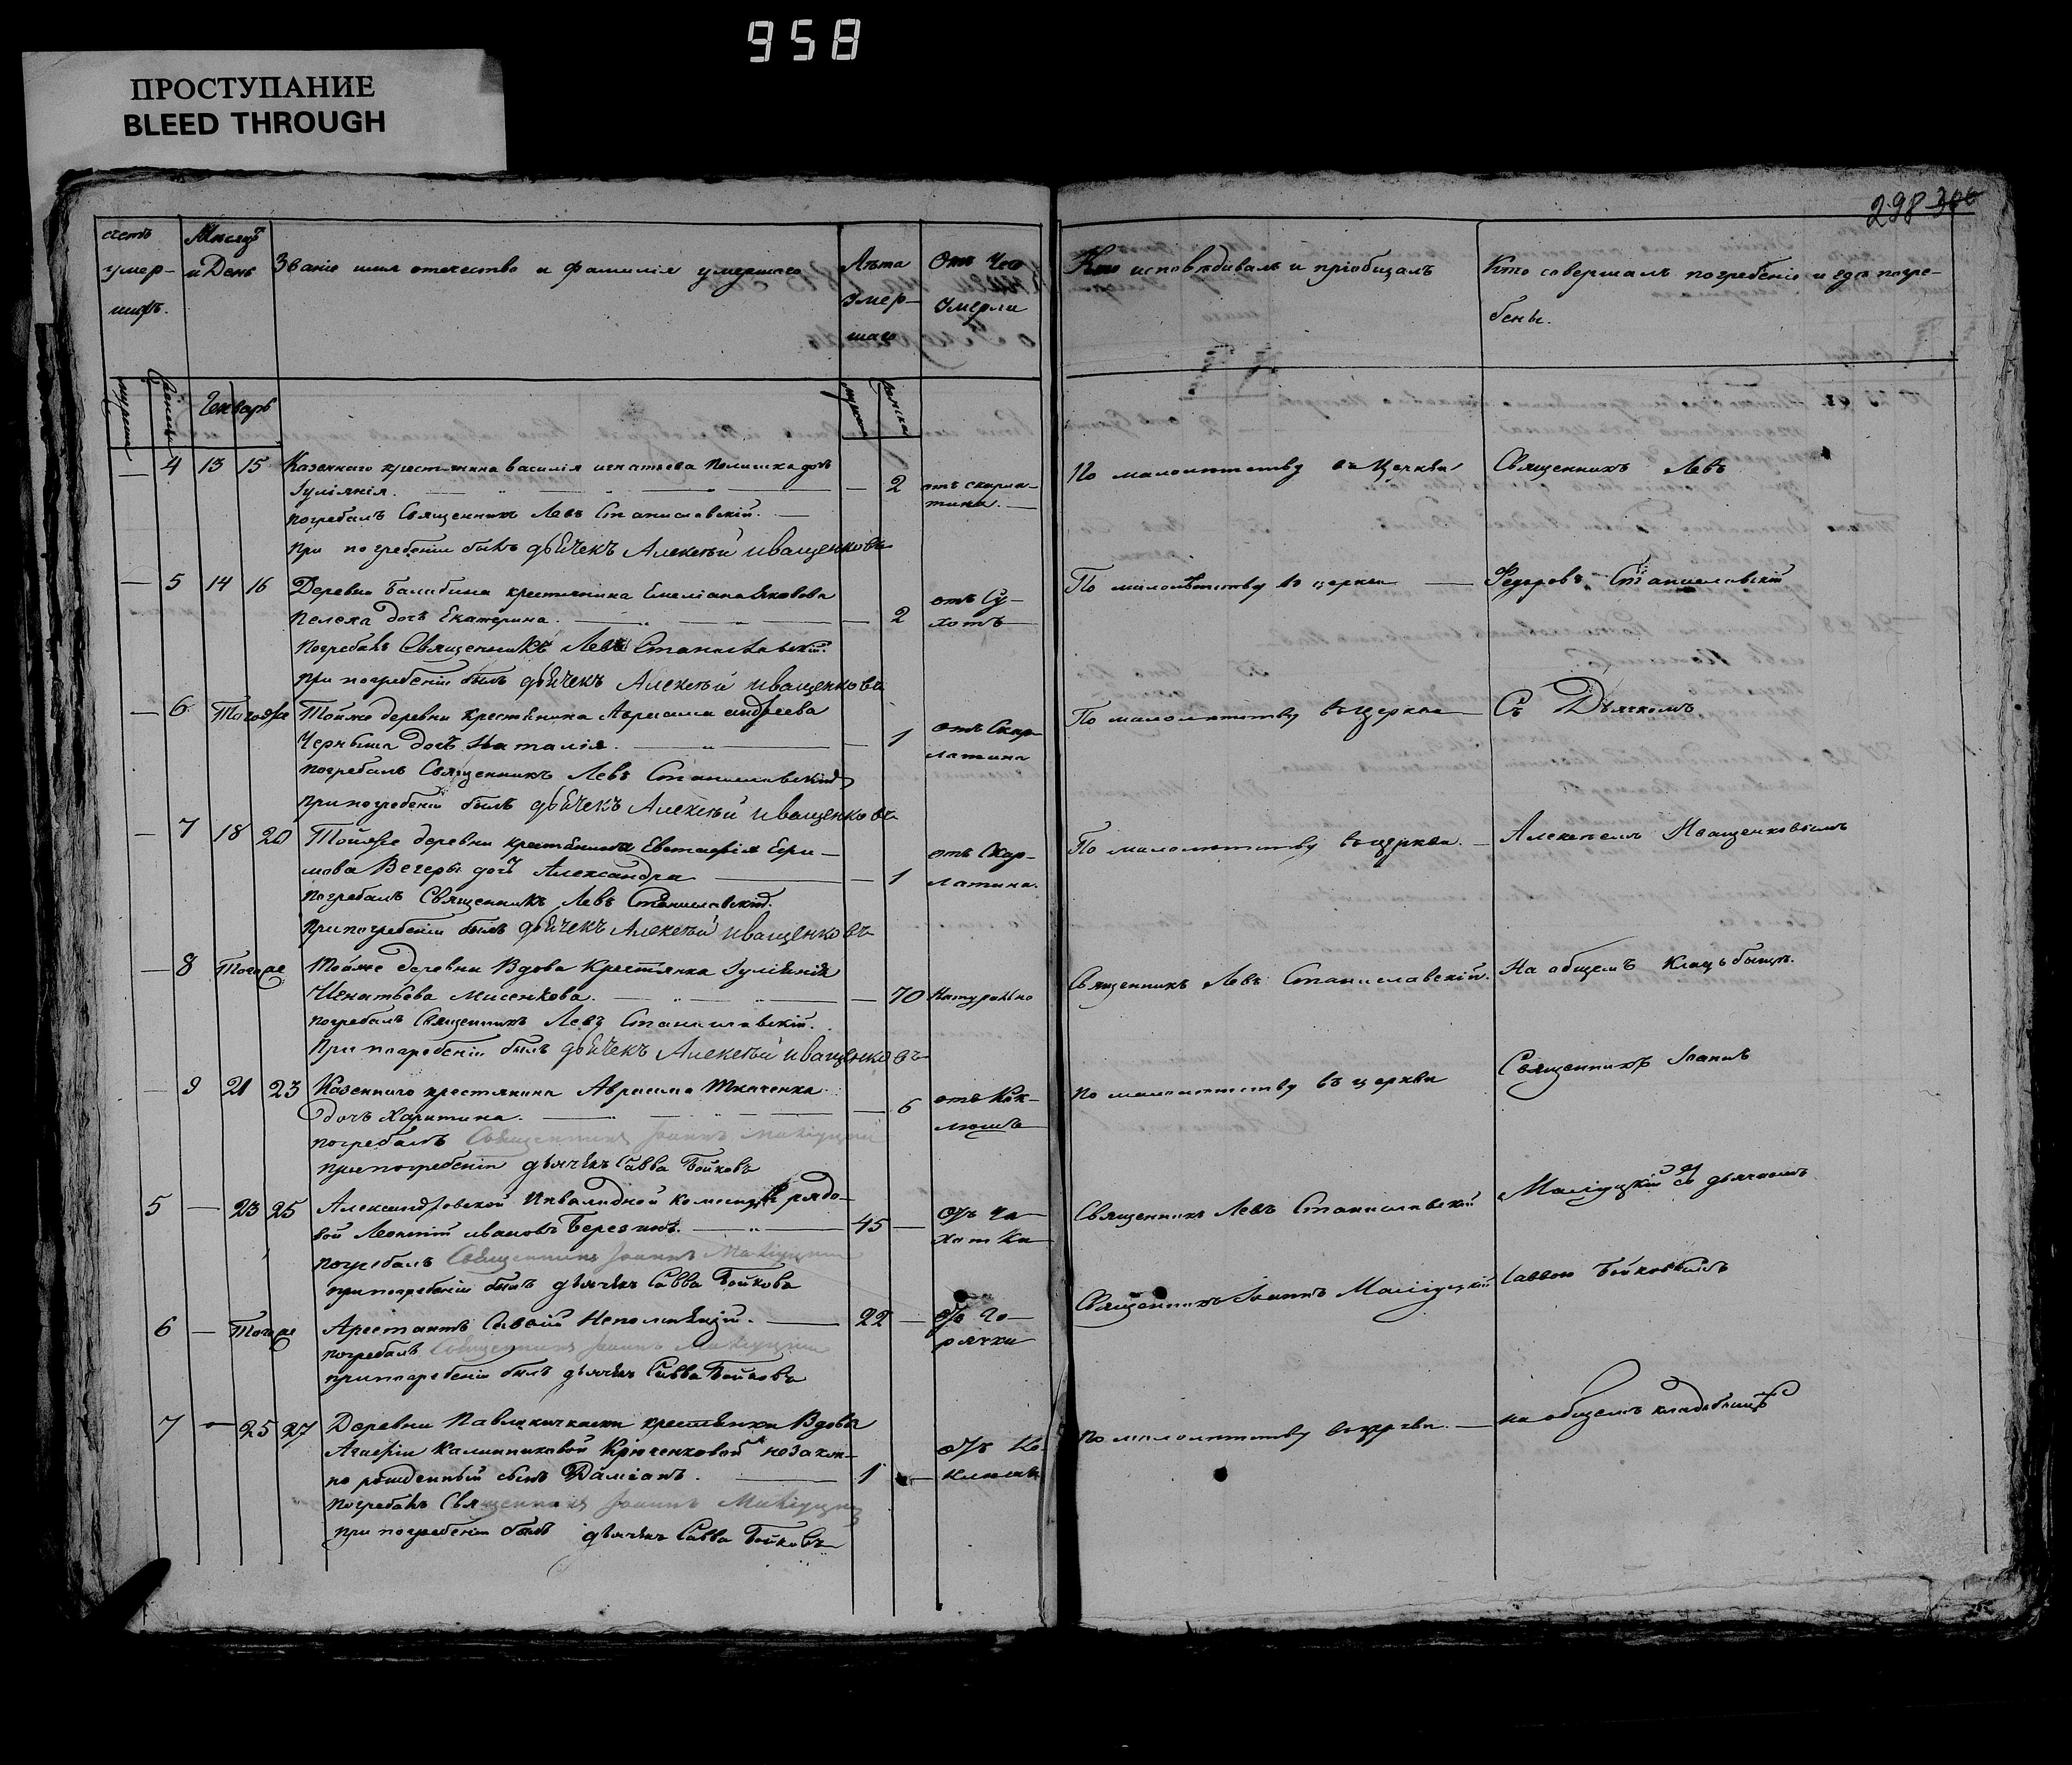 958
ПРОСТУПАНИЕ
BLEED THROUGH
298 306
счетъ умер-шихъ.
Мѣсяцъ и День
Званіе имя отечество и фамилія умершаго
Лѣта Умер-шаго
Отъ Чего Умерли
Кто исповѣдивалъ и пріобщалъ
Кто совершалъ погребеніе и гдѣ погре-
бены.
Генварь
4 13 15 Казеннаго крестьянина Василія игнатьева дочь
Іуліянія. 2 отъ скарла-
тина.
погребалъ Священникъ Левъ Станиславскій.
при погребеніи былъ дьячекъ Алексѣй иващенковъ
По малолѣтству въ Церкви Священникъ Левъ
5 14 16 Деревни Балабина крестьянина Емеліана Яковова
дочь Екатерина. 2 отъ Су-
хотъ
Погребалъ Священникъ Левъ Станиславскій.
при погребеніи былъ дьячекъ Алексѣй иващенковъ
По малолѣтству въ церкви Федоровъ Станиславскій
6 Тогоже Тойже деревни крестьянина Авраама андреева
Черныша дочь Наталія. 1 отъ Скар-
латина
погребалъ Священникъ Левъ Станиславскій
при погребеніи былъ дьячекъ Алексѣй иващенковъ
По малолѣтству въ церкви Съ Дьячкомъ
7 18 20 Тойже деревни крестьянина Евстафія Ефи-
мова Вечеры дочь Александра 1 отъ Скар-
латина.
погребалъ Священникъ Левъ Станиславскій.
при погребеніи былъ дьячекъ Алексѣй иващенковъ
По малолѣтству въ церкви. Алексѣемъ Иващенковымъ
8 Тогоже Тойже деревни Вдова Крестянка Іуліянія
Игнатьева Мисенкова. 70 Натурально
погребалъ Священникъ Левъ Станиславскій.
При погребеніи былъ дьячекъ Алексѣй иващенковъ
Священникъ Левъ Станиславскій. На общемъ кладьбищѣ.
9 21 23 Казеннаго крестянина Авраама Ткаченка
дочь Харитина. 6 отъ Кок-
люша
погребалъ Священникъ Іоаннъ
при погребеніи дьячекъ Савва Бойковъ
по малолѣтству въ церкви Священникъ Іоаннъ
5 23 25 Александровской Инвалидной команды рядо-
вой Леонтій ивановъ Березинъ. 45 отъ ча-
хотки
погребалъ Священникъ Іоаннъ
при погребеніи былъ дьячекъ Савва Бойковъ
Священникъ Левъ Станиславскій съ дьячкомъ
6 Тогоже Арестантъ Савва Непомнящій. 22 отъ го-
рячки
погребалъ Священникъ Іоаннъ
при погребеніи былъ дьячекъ Савва Бойковъ
Священникъ Іоаннъ Саввою Бойковымъ
7 25 27 Деревни крестьянки Вдовы
Агафіи Калинниковой Крюченковой незакон-
но рожденный сынъ Даміанъ. 1 отъ Ко-
клюша
Погребалъ Священникъ Іоаннъ
при погребеніи былъ дьячекъ Савва Бойковъ
по малолѣтству въ церкви. на общемъ кладбищѣ